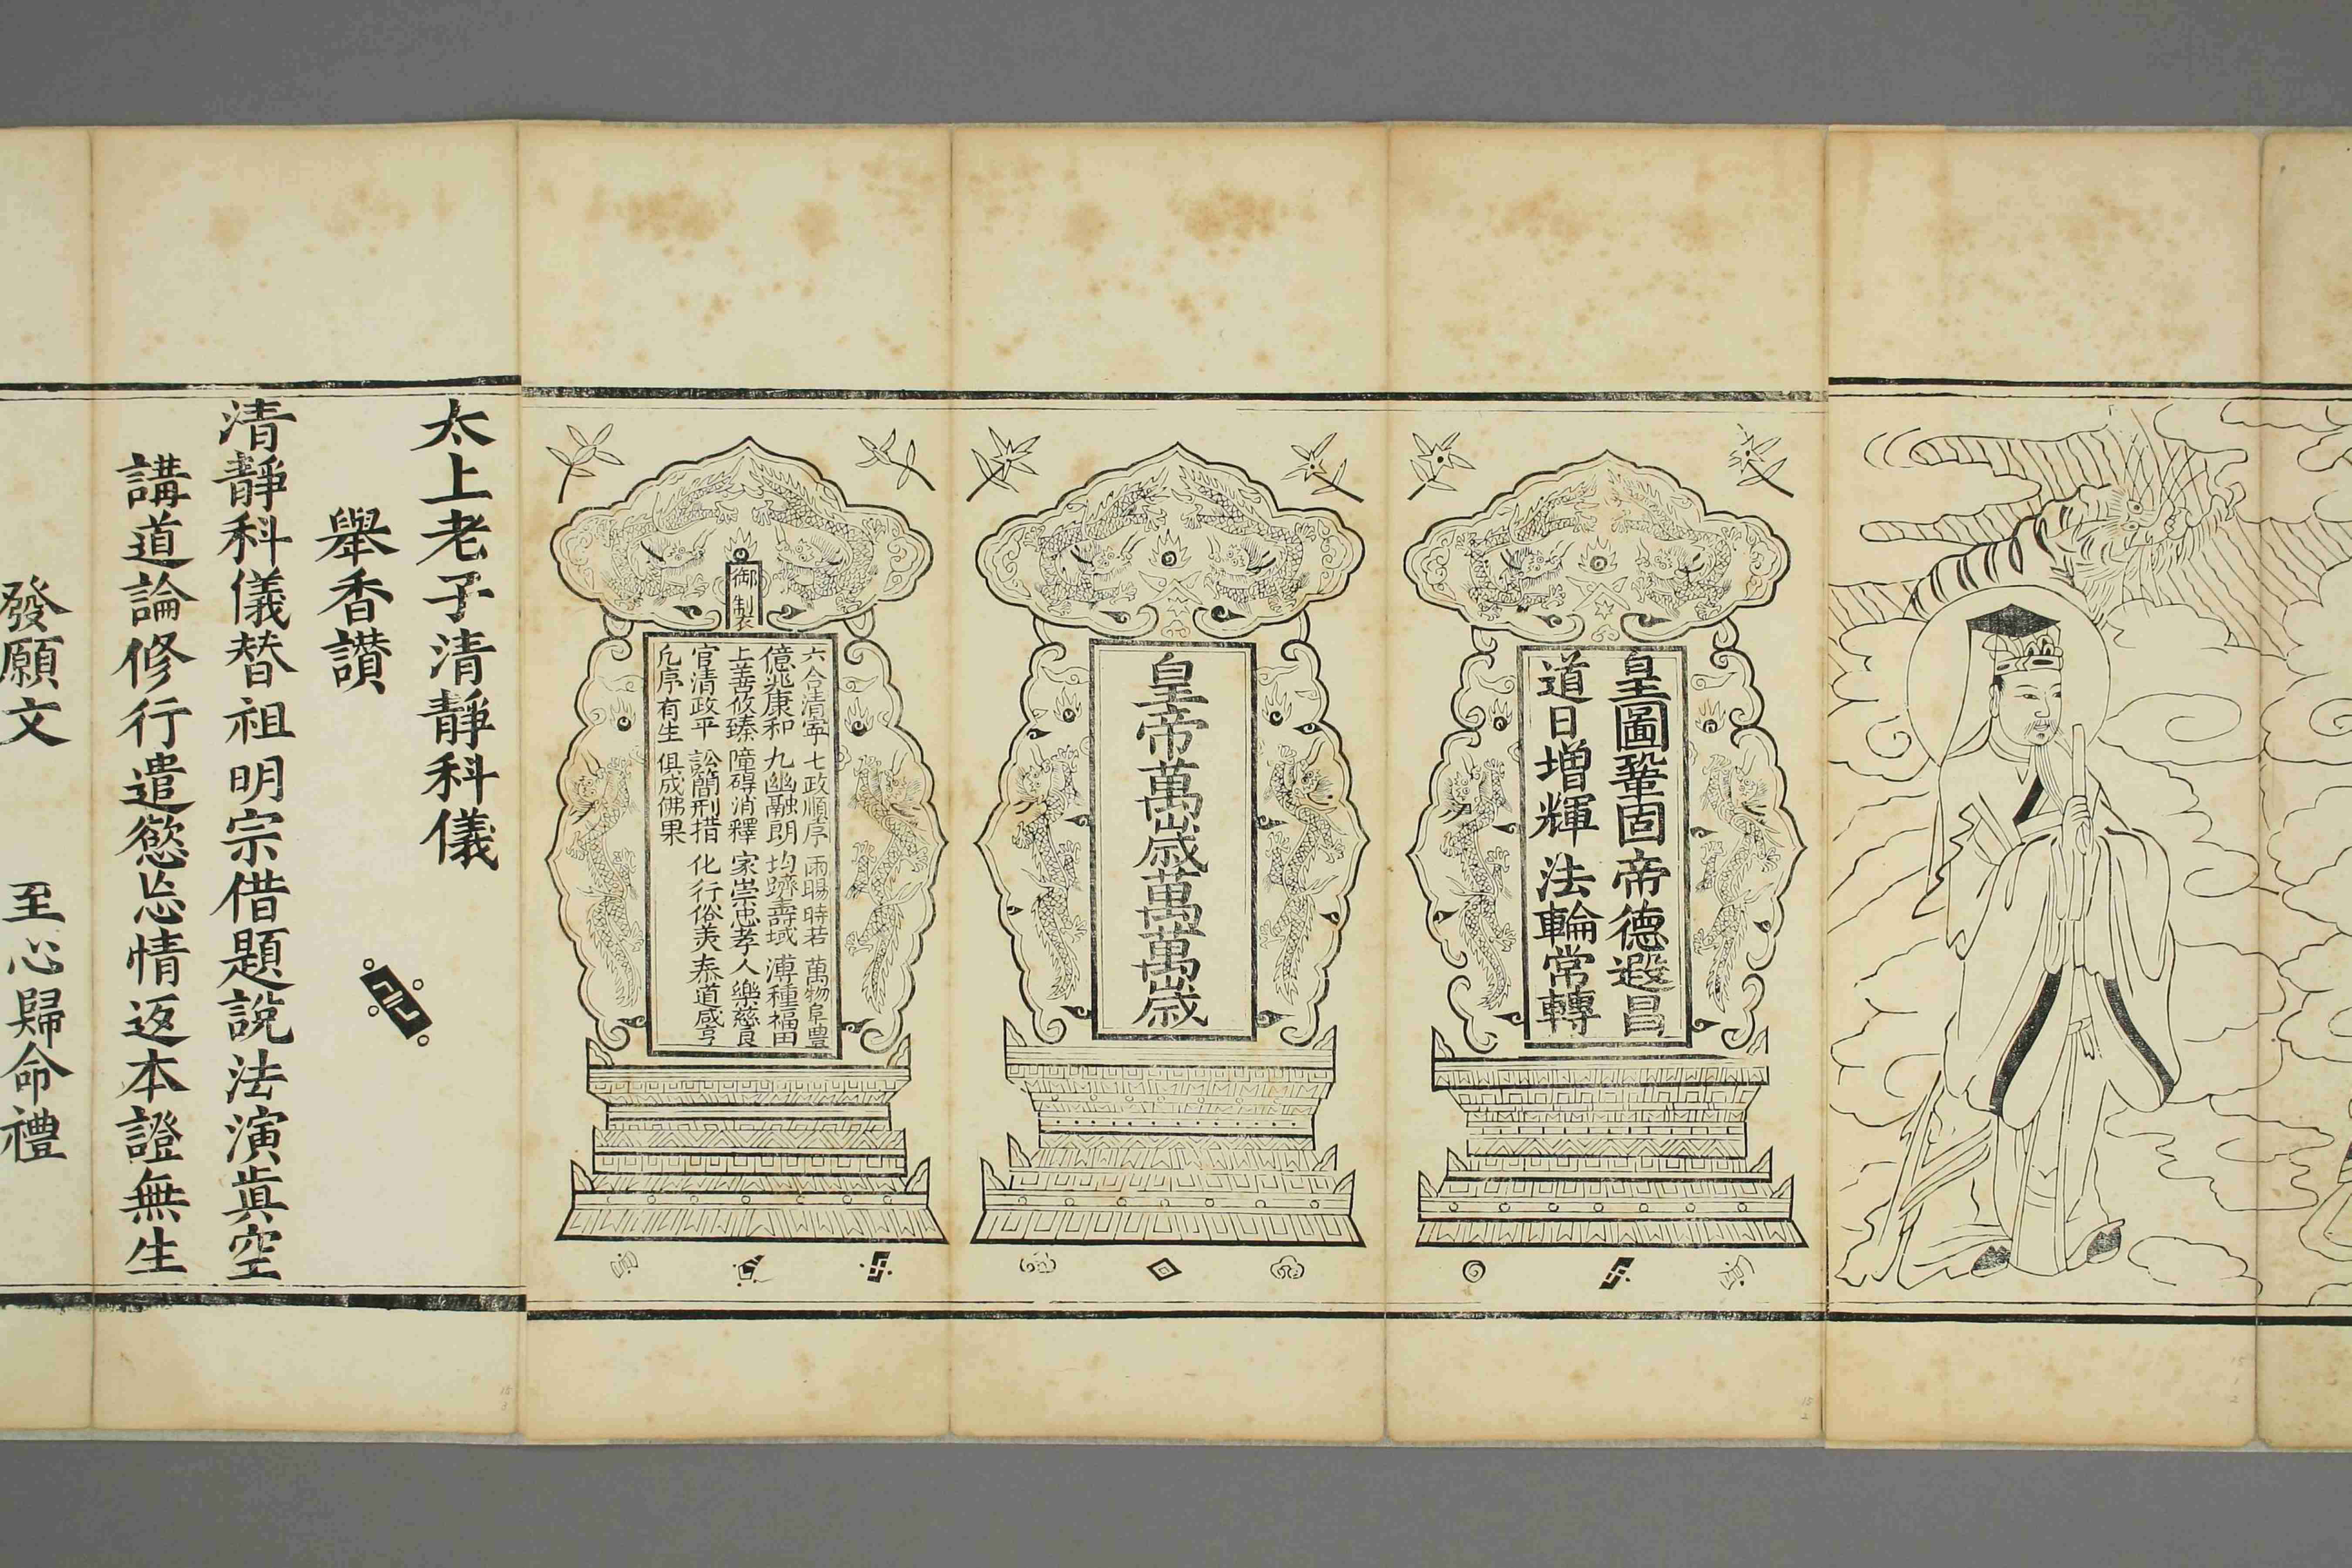 皇圖鞏固 帝德遐昌
道日增輝 法輪常轉
皇帝萬歲萬萬歲
御製
六合清寧 七政順序 雨暘時若 萬物阜豐
億兆康和 九幽融朗 均躋壽域 溥種福田
上善攸臻 障碍消釋 家崇忠孝 人樂慈良
官清政平 訟簡刑措 化行俗美 泰道咸亨
凢序有生 俱成佛果
太上老子清靜科儀
舉香讚
清靜科儀替祖明宗借題說法演眞空
講道論修行遣慾忘情返本證無生
發願文 至心歸命禮